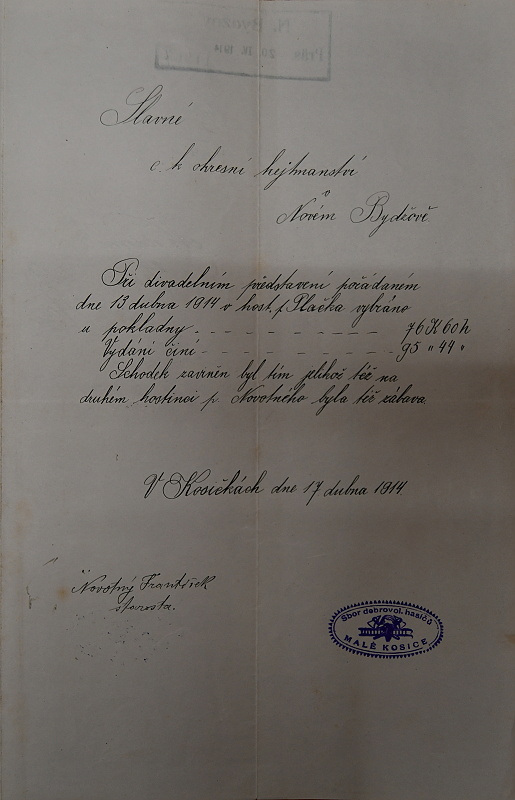 Slavné
c. k. okresní hejtmanství
v
Novém Bydžově.
Při divadelním představení pořádaném
dne 13 dubna 1914 v host. p. Plačka vybráno
u pokladny - - - - - - - - - 76 K 60 h
Vydání činí - - - - - - - - - 95 " 44 "
Schodek zaviněn byl tím jelikož též na
druhém hostinci p. Novotného byla též zábava.
V Kosičkách dne 17 dubna 1914.
Novotný František
starosta.
Sbor dobrovol. hasičů
MALÉ KOSICE